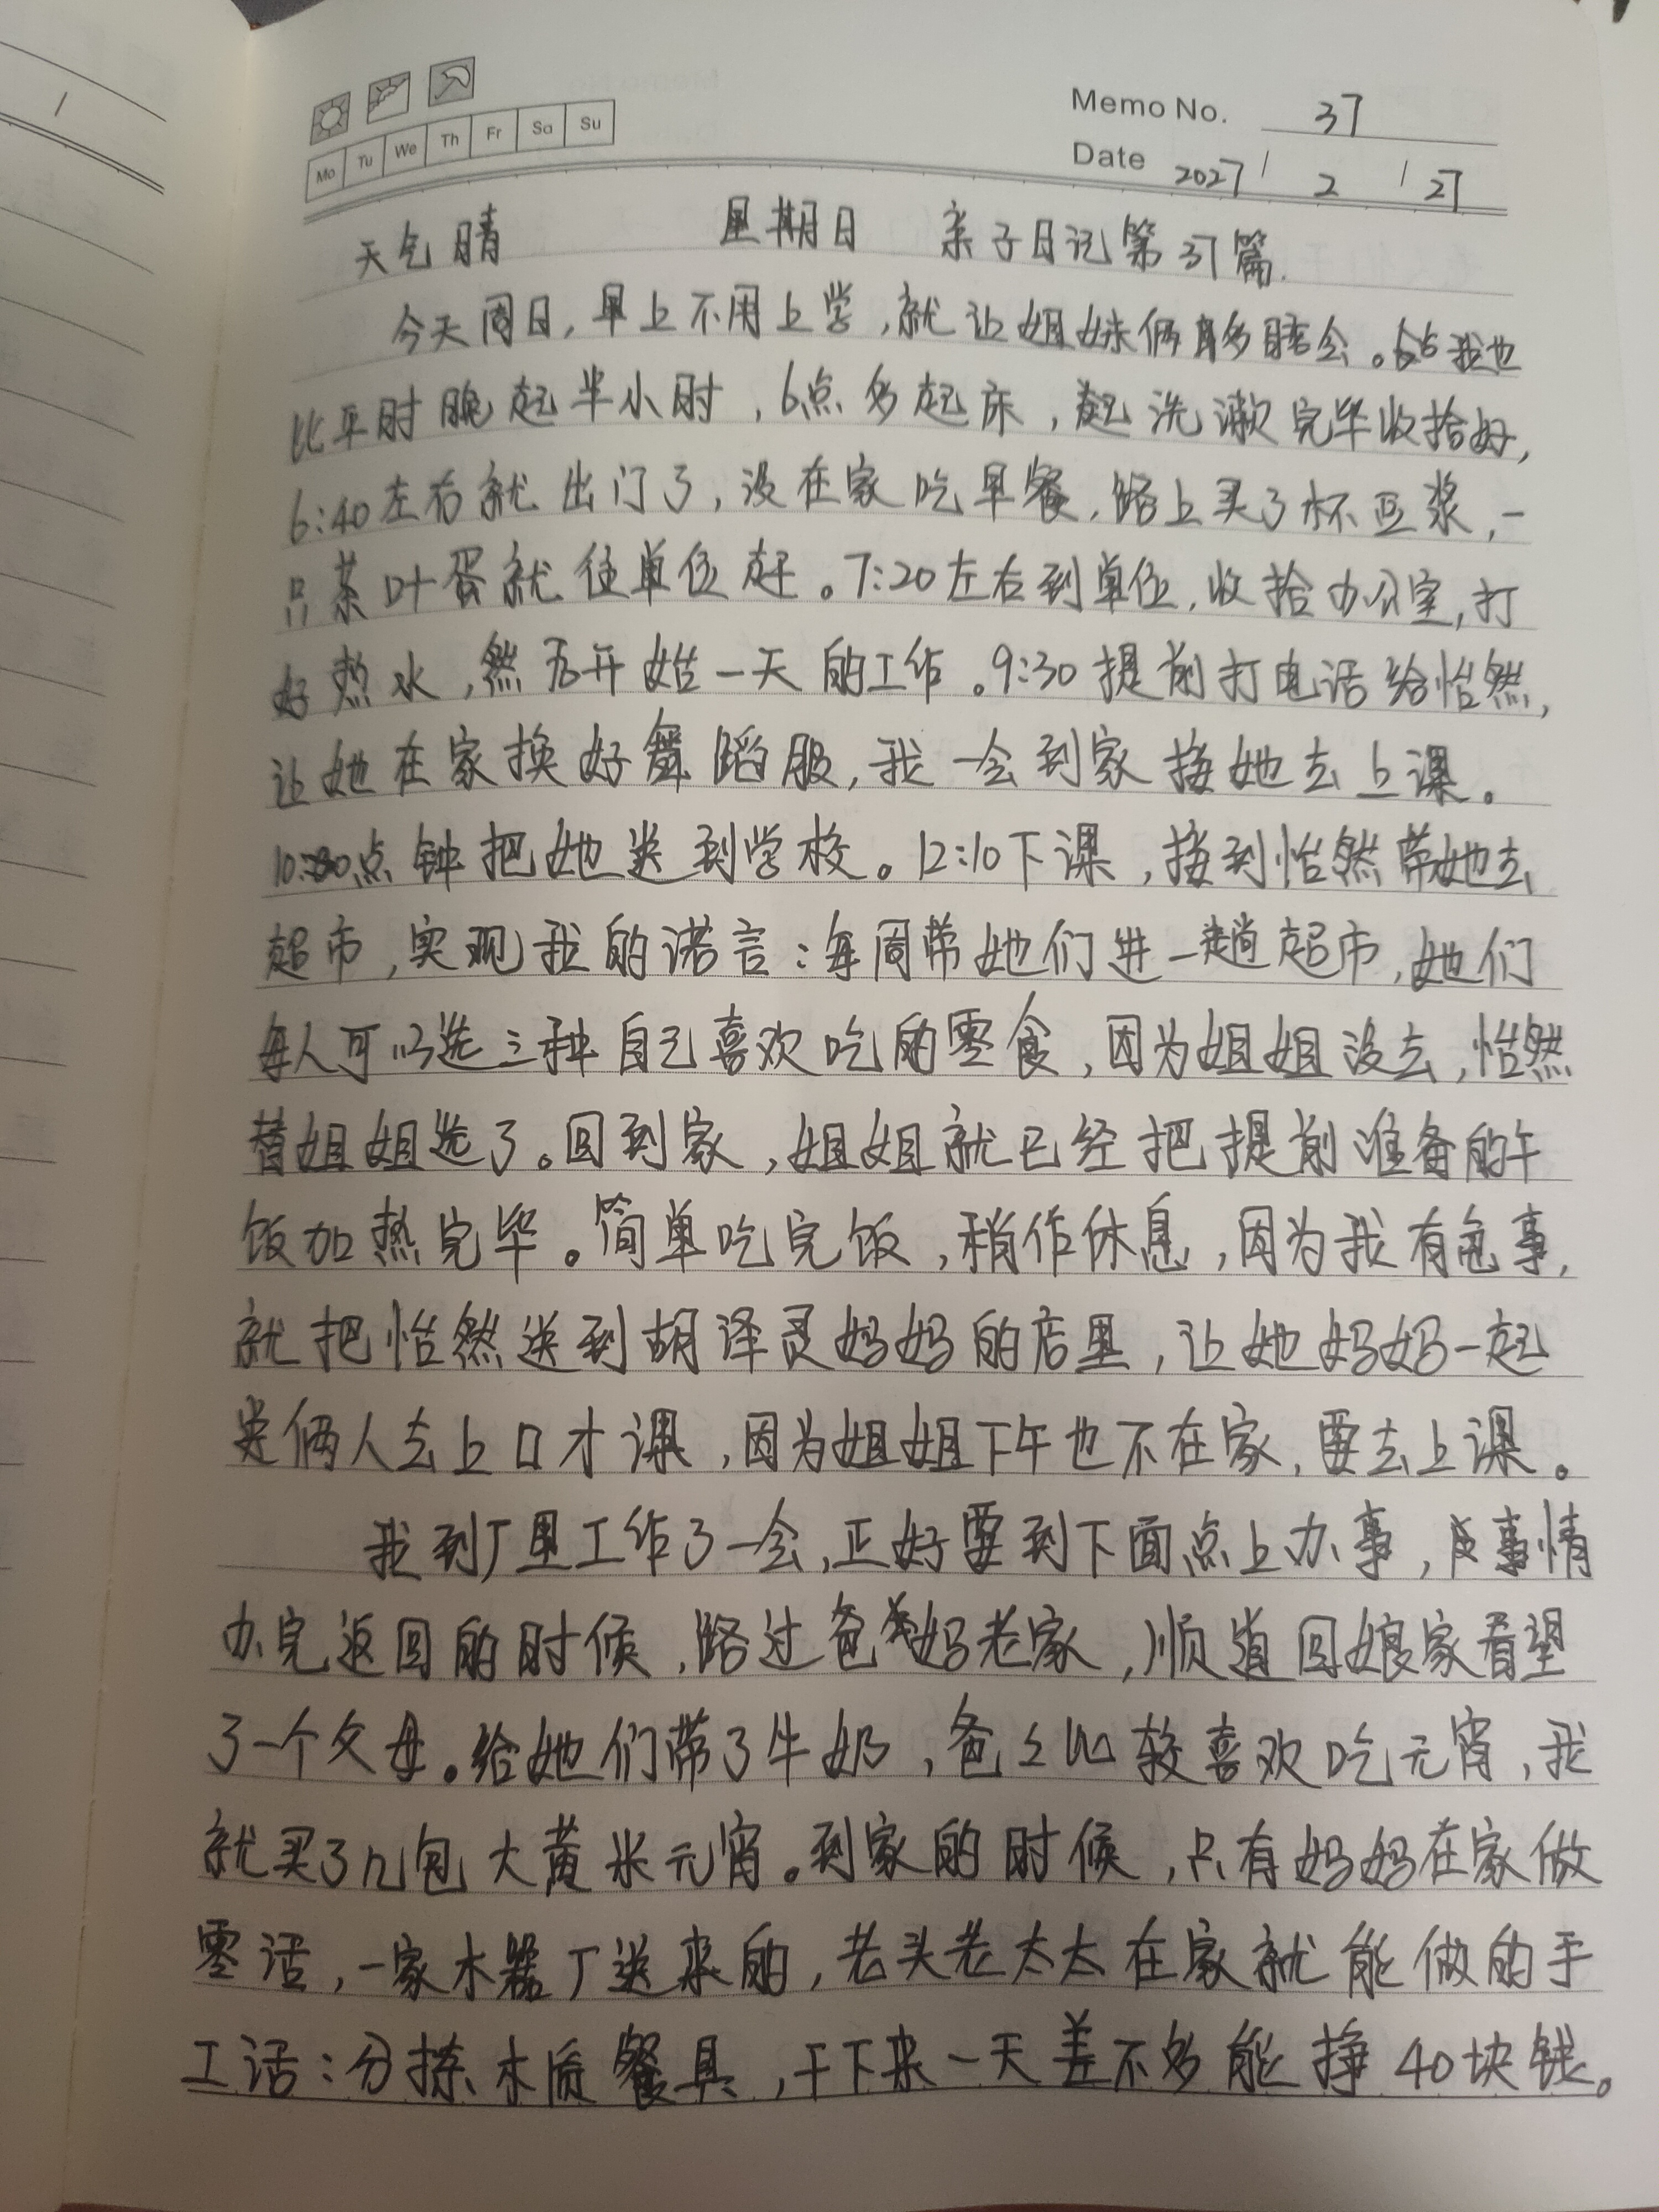 Memo No. 37
Mo Tu We Th Fr Sa Su
Date 2027 / 2 / 27
天气晴 星期日 亲子日记第37篇.
今天周日,早上不用上学,就让姐妹俩多睡会。我也
比平时晚起半小时,6点多起床,起洗漱完毕收拾好,
6:40左右就出门了,没在家吃早餐,路上买了杯豆浆,一
只茶叶蛋就往单位赶。7:20左右到单位,收拾办公室,打
好热水,然后开始一天的工作。9:30提前打电话给怡然,
让她在家换好舞蹈服,我一会到家接她去上课。
10:30点钟把她送到学校。12:10下课,接到怡然带她去
超市,实现我的诺言:每周带她们进一趟超市,她们
每人可以选三种自己喜欢吃的零食,因为姐姐没去,怡然
替姐姐选了。回到家,姐姐就已经把提前准备的午
饭加热完毕。简单吃完饭,稍作休息,因为我有急事,
就把怡然送到胡泽灵妈妈的店里,让她妈妈一起
送俩人去上口才课,因为姐姐下午也不在家,要去上课。
我到厂里工作了一会,正好要到下面点上办事,事情
办完返回的时候,路过爸妈老家,顺道回娘家看望
了一个父母。给她们带了牛奶,爸爸比较喜欢吃元宵,我
就买了几包大黄米元宵。到家的时候,只有妈妈在家做
零活,一家木器厂送来的,老头老太太在家就能做的手
工活:分拣木质餐具,干下来一天差不多能挣40块钱。